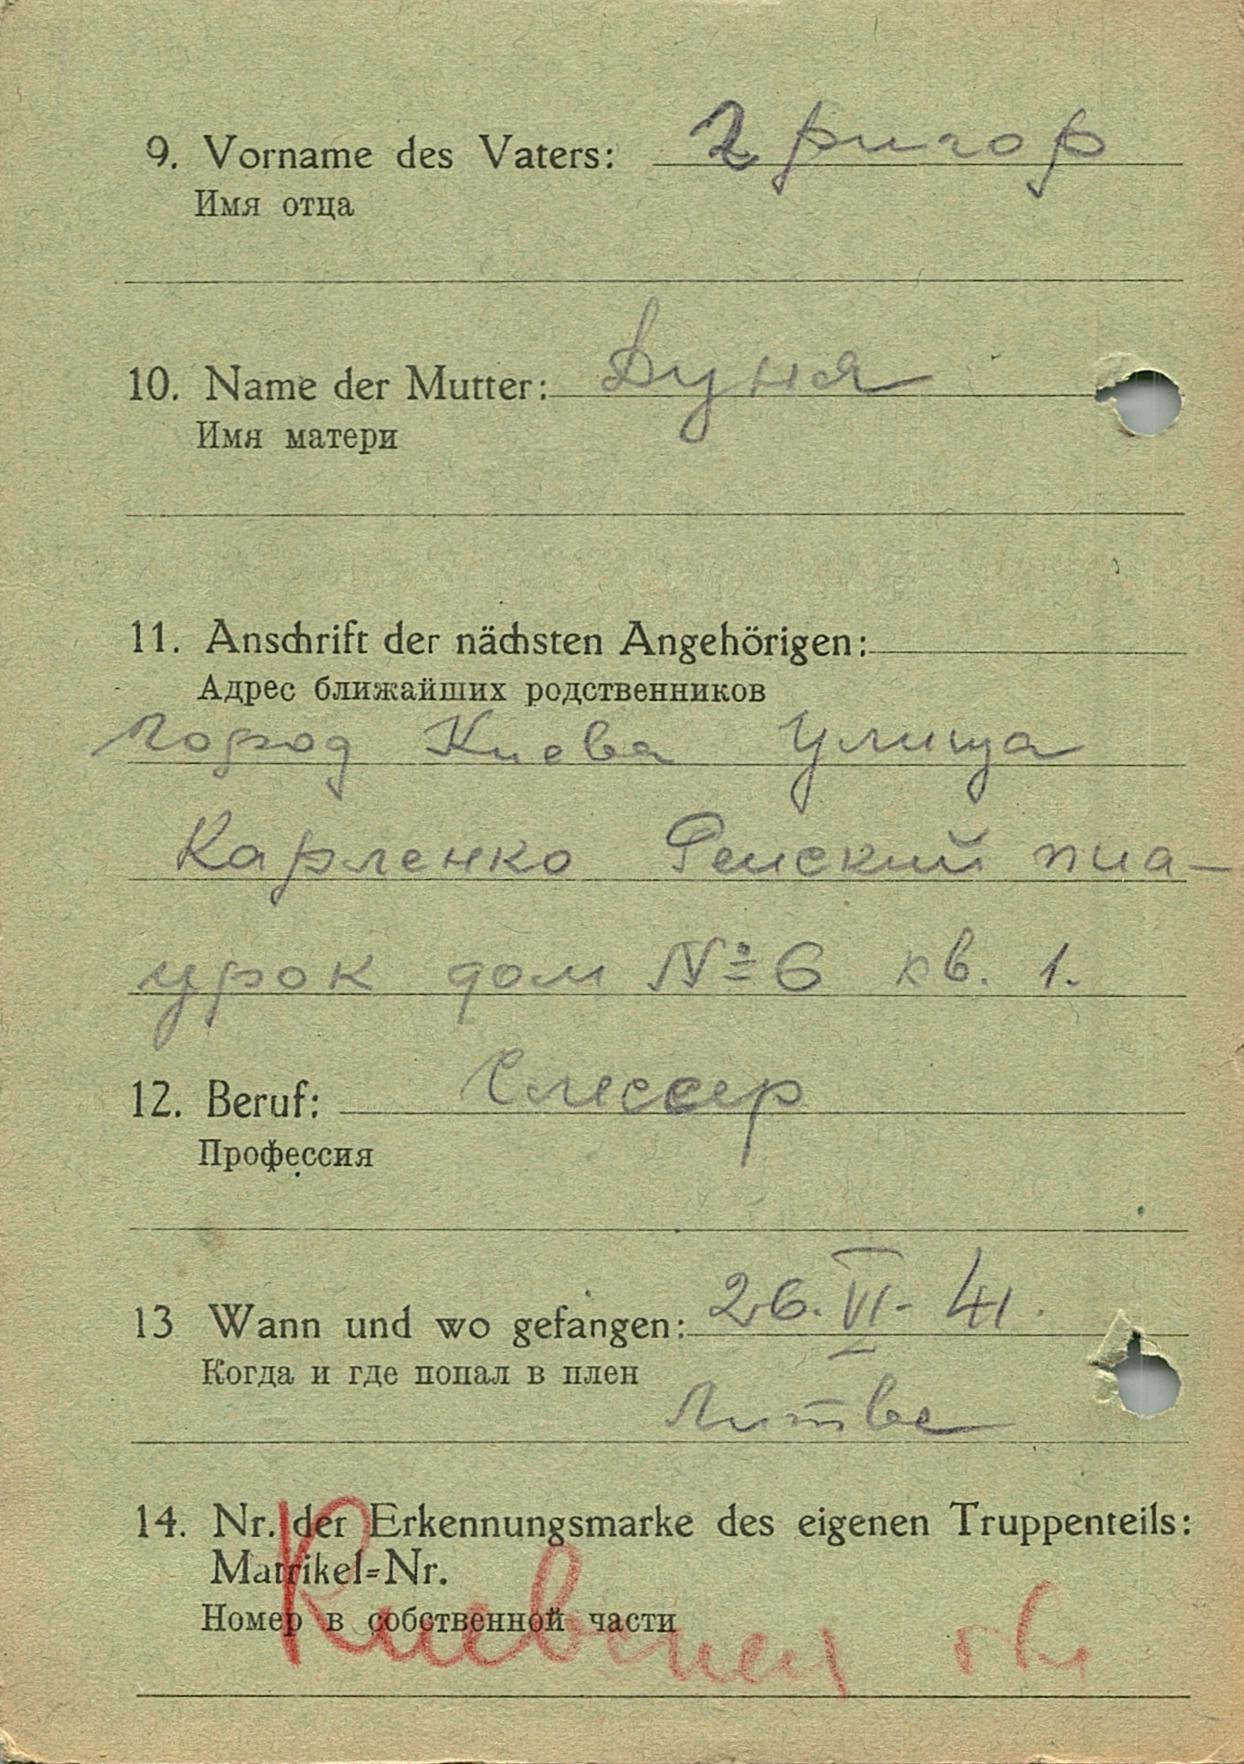 9. Vorname des Vaters: Григор
Имя отца
10. Name der Mutter: Дуня
Имя матери
11. Anschrift der nächsten Angehörigen:
Адрес ближайших родственников
город Киева улица
Карленко Рейский пиа-
урок дом № 6 кв. 1.
12. Beruf: Слессер
Профессия
13 Wann und wo gefangen: 26. VI - 41.
Когда и где попал в плен
Литве
14. Nr. der Erkennungsmarke des eigenen Truppenteils:
Matrikel=Nr.
Номер в собственной части
Киевская